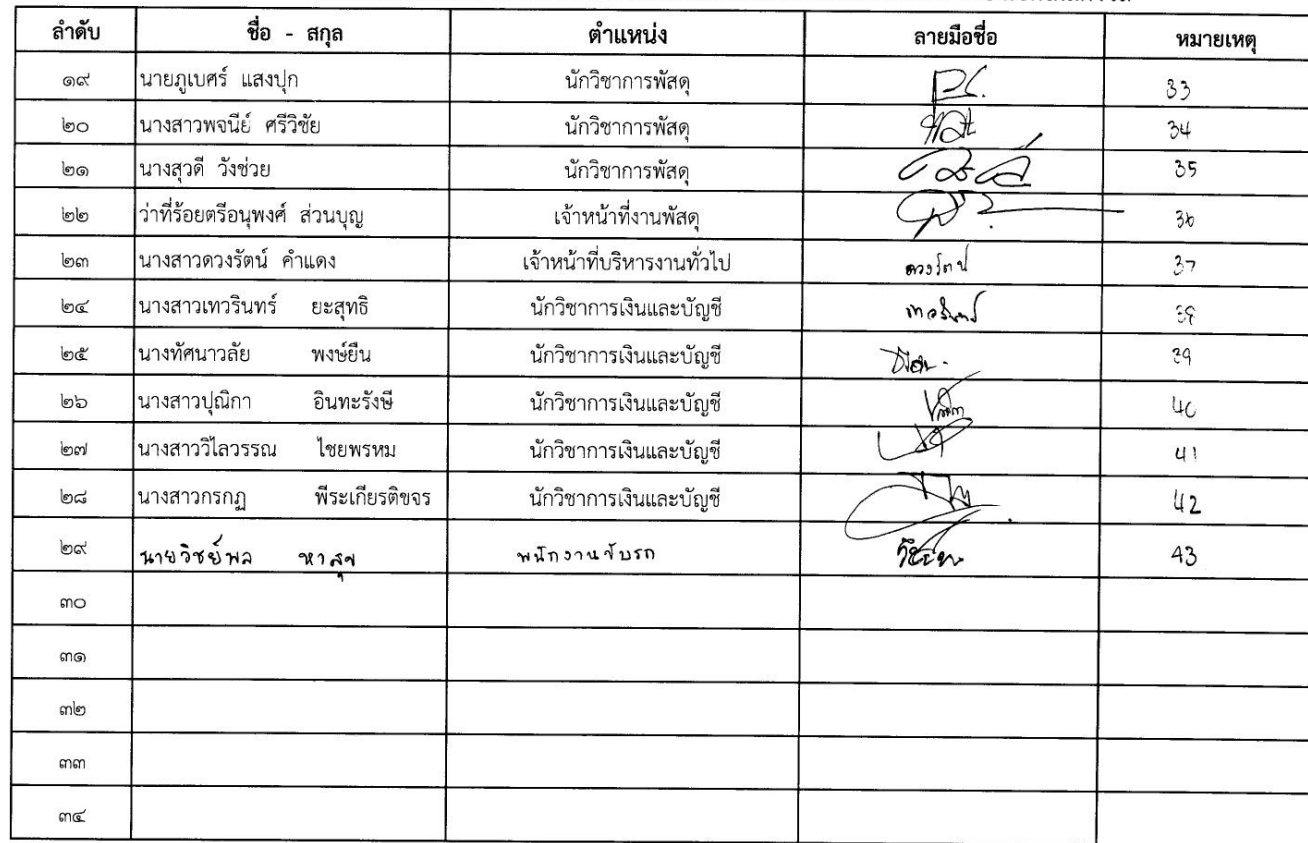 ลำดับ ชื่อ - สกุล ตำแหน่ง ลายมือชื่อ หมายเหตุ
๑๙ นายภูเบศร์ แสงปุก นักวิชาการพัสดุ 33
๒๐ นางสาวพจนีย์ ศรีวิชัย นักวิชาการพัสดุ 34
๒๑ นางสุวดี วังช่วย นักวิชาการพัสดุ 35
๒๒ ว่าที่ร้อยตรีอนุพงศ์ ส่วนบุญ เจ้าหน้าที่งานพัสดุ 36
๒๓ นางสาวดวงรัตน์ คำแดง เจ้าหน้าที่บริหารงานทั่วไป ดวงรัตน์ 37
๒๔ นางสาวเทวรินทร์ ยะสุทธิ นักวิชาการเงินและบัญชี เทวรินทร์ 38
๒๕ นางทัศนาวลัย พงษ์ยืน นักวิชาการเงินและบัญชี 39
๒๖ นางสาวปุณิกา อินทะรังษี นักวิชาการเงินและบัญชี 40
๒๗ นางสาววิไลวรรณ ไชยพรหม นักวิชาการเงินและบัญชี 41
๒๘ นางสาวกรกฏ พีระเกียรติขจร นักวิชาการเงินและบัญชี 42
๒๙ นายวิชย์พล หาสุข พนักงานขับรถ 43
๓๐
๓๑
๓๒
๓๓
๓๔